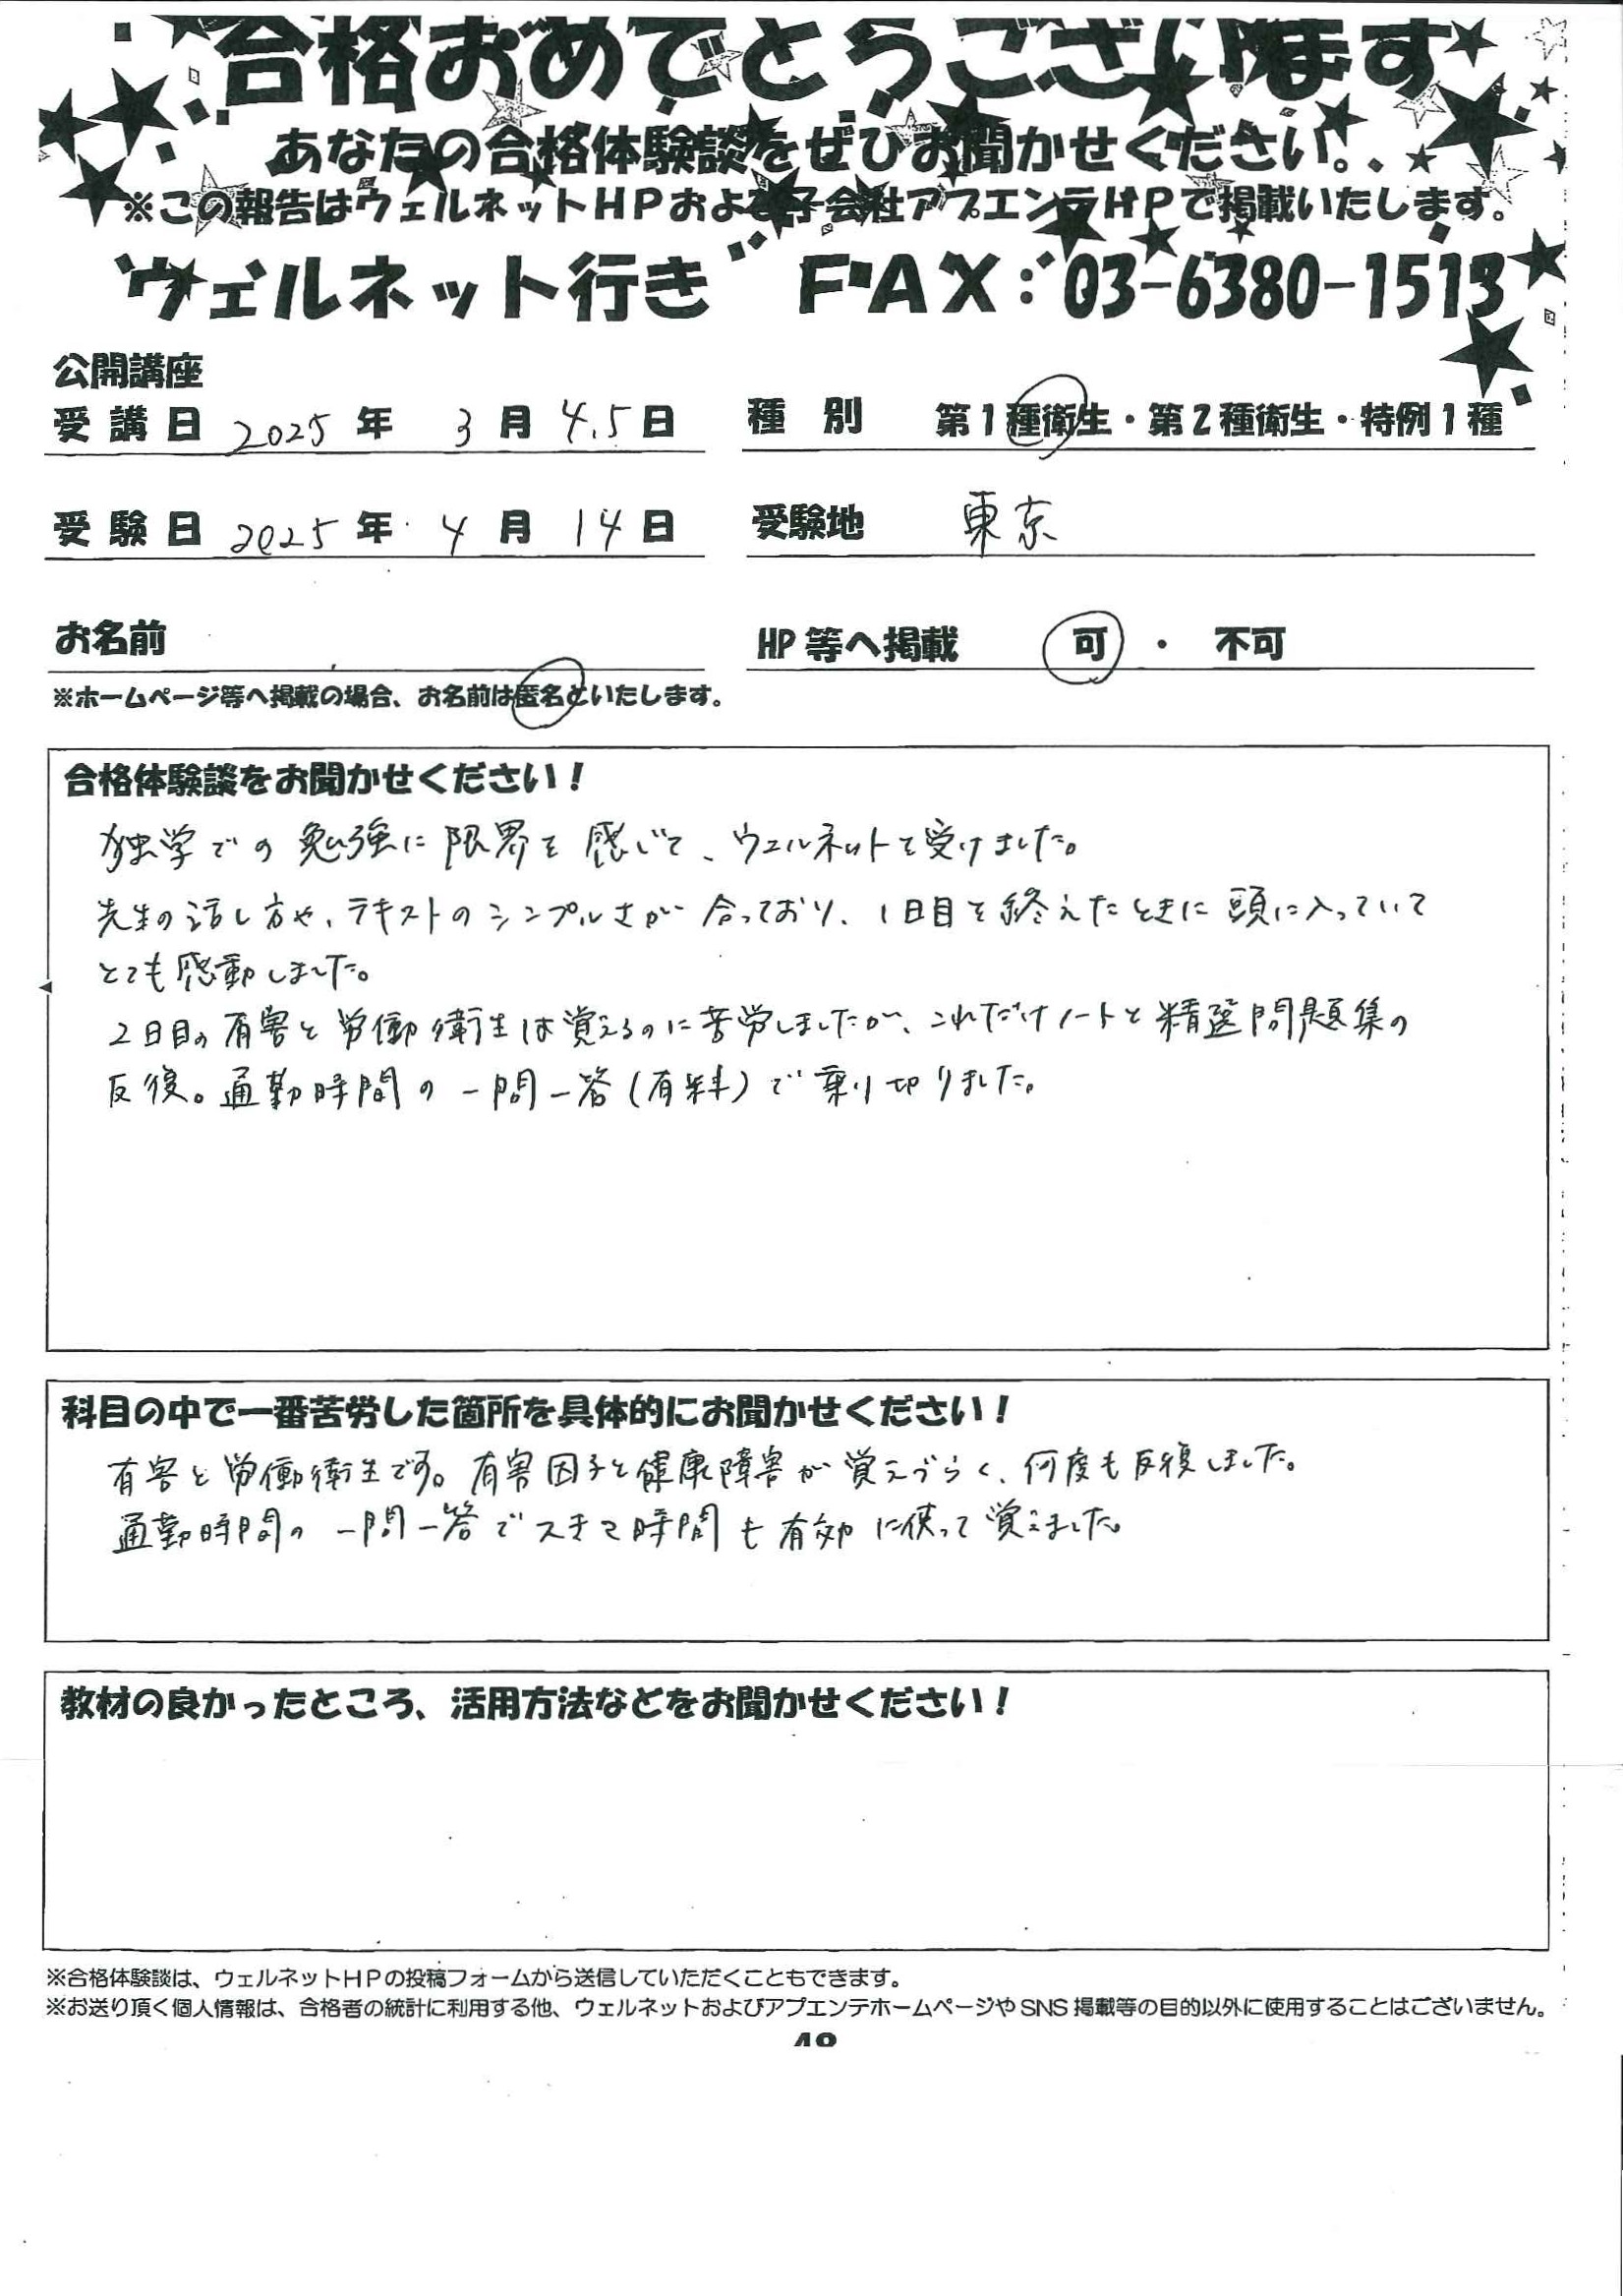 合格おめでとうございます
あなたの合格体験談をぜひお聞かせください。
※この報告はウェルネットHPおよび子会社アプエンテHPで掲載いたします。
ウェルネット行き FAX：03-6380-1513
公開講座
受講日 2025年 3月 4.5日 種別 第1種衛生・第2種衛生・特例1種
受験日 2025年 4月 14日 受験地 東京
お名前 HP等へ掲載 可 ・ 不可
※ホームページ等へ掲載の場合、お名前は匿名といたします。
合格体験談をお聞かせください！
独学での勉強に限界を感じて、ウェルネットを受けました。
先生の話し方や、テキストのシンプルさが合っており、1日目を終えたときに頭に入っていて
とても感動しました。
2日目の有害と労働衛生は覚えるのに苦労しましたが、これだけノートと精選問題集の
反復。通勤時間の一問一答(有料)で乗り切りました。
科目の中で一番苦労した箇所を具体的にお聞かせください！
有害と労働衛生です。有害因子と健康障害が覚えづらく、何度も反復しました。
通勤時間の一問一答でスキマ時間も有効に使って覚えました。
教材の良かったところ、活用方法などをお聞かせください！
※合格体験談は、ウェルネットHPの投稿フォームから送信していただくこともできます。
※お送り頂く個人情報は、合格者の統計に利用する他、ウェルネットおよびアプエンテホームページやSNS掲載等の目的以外に使用することはございません。